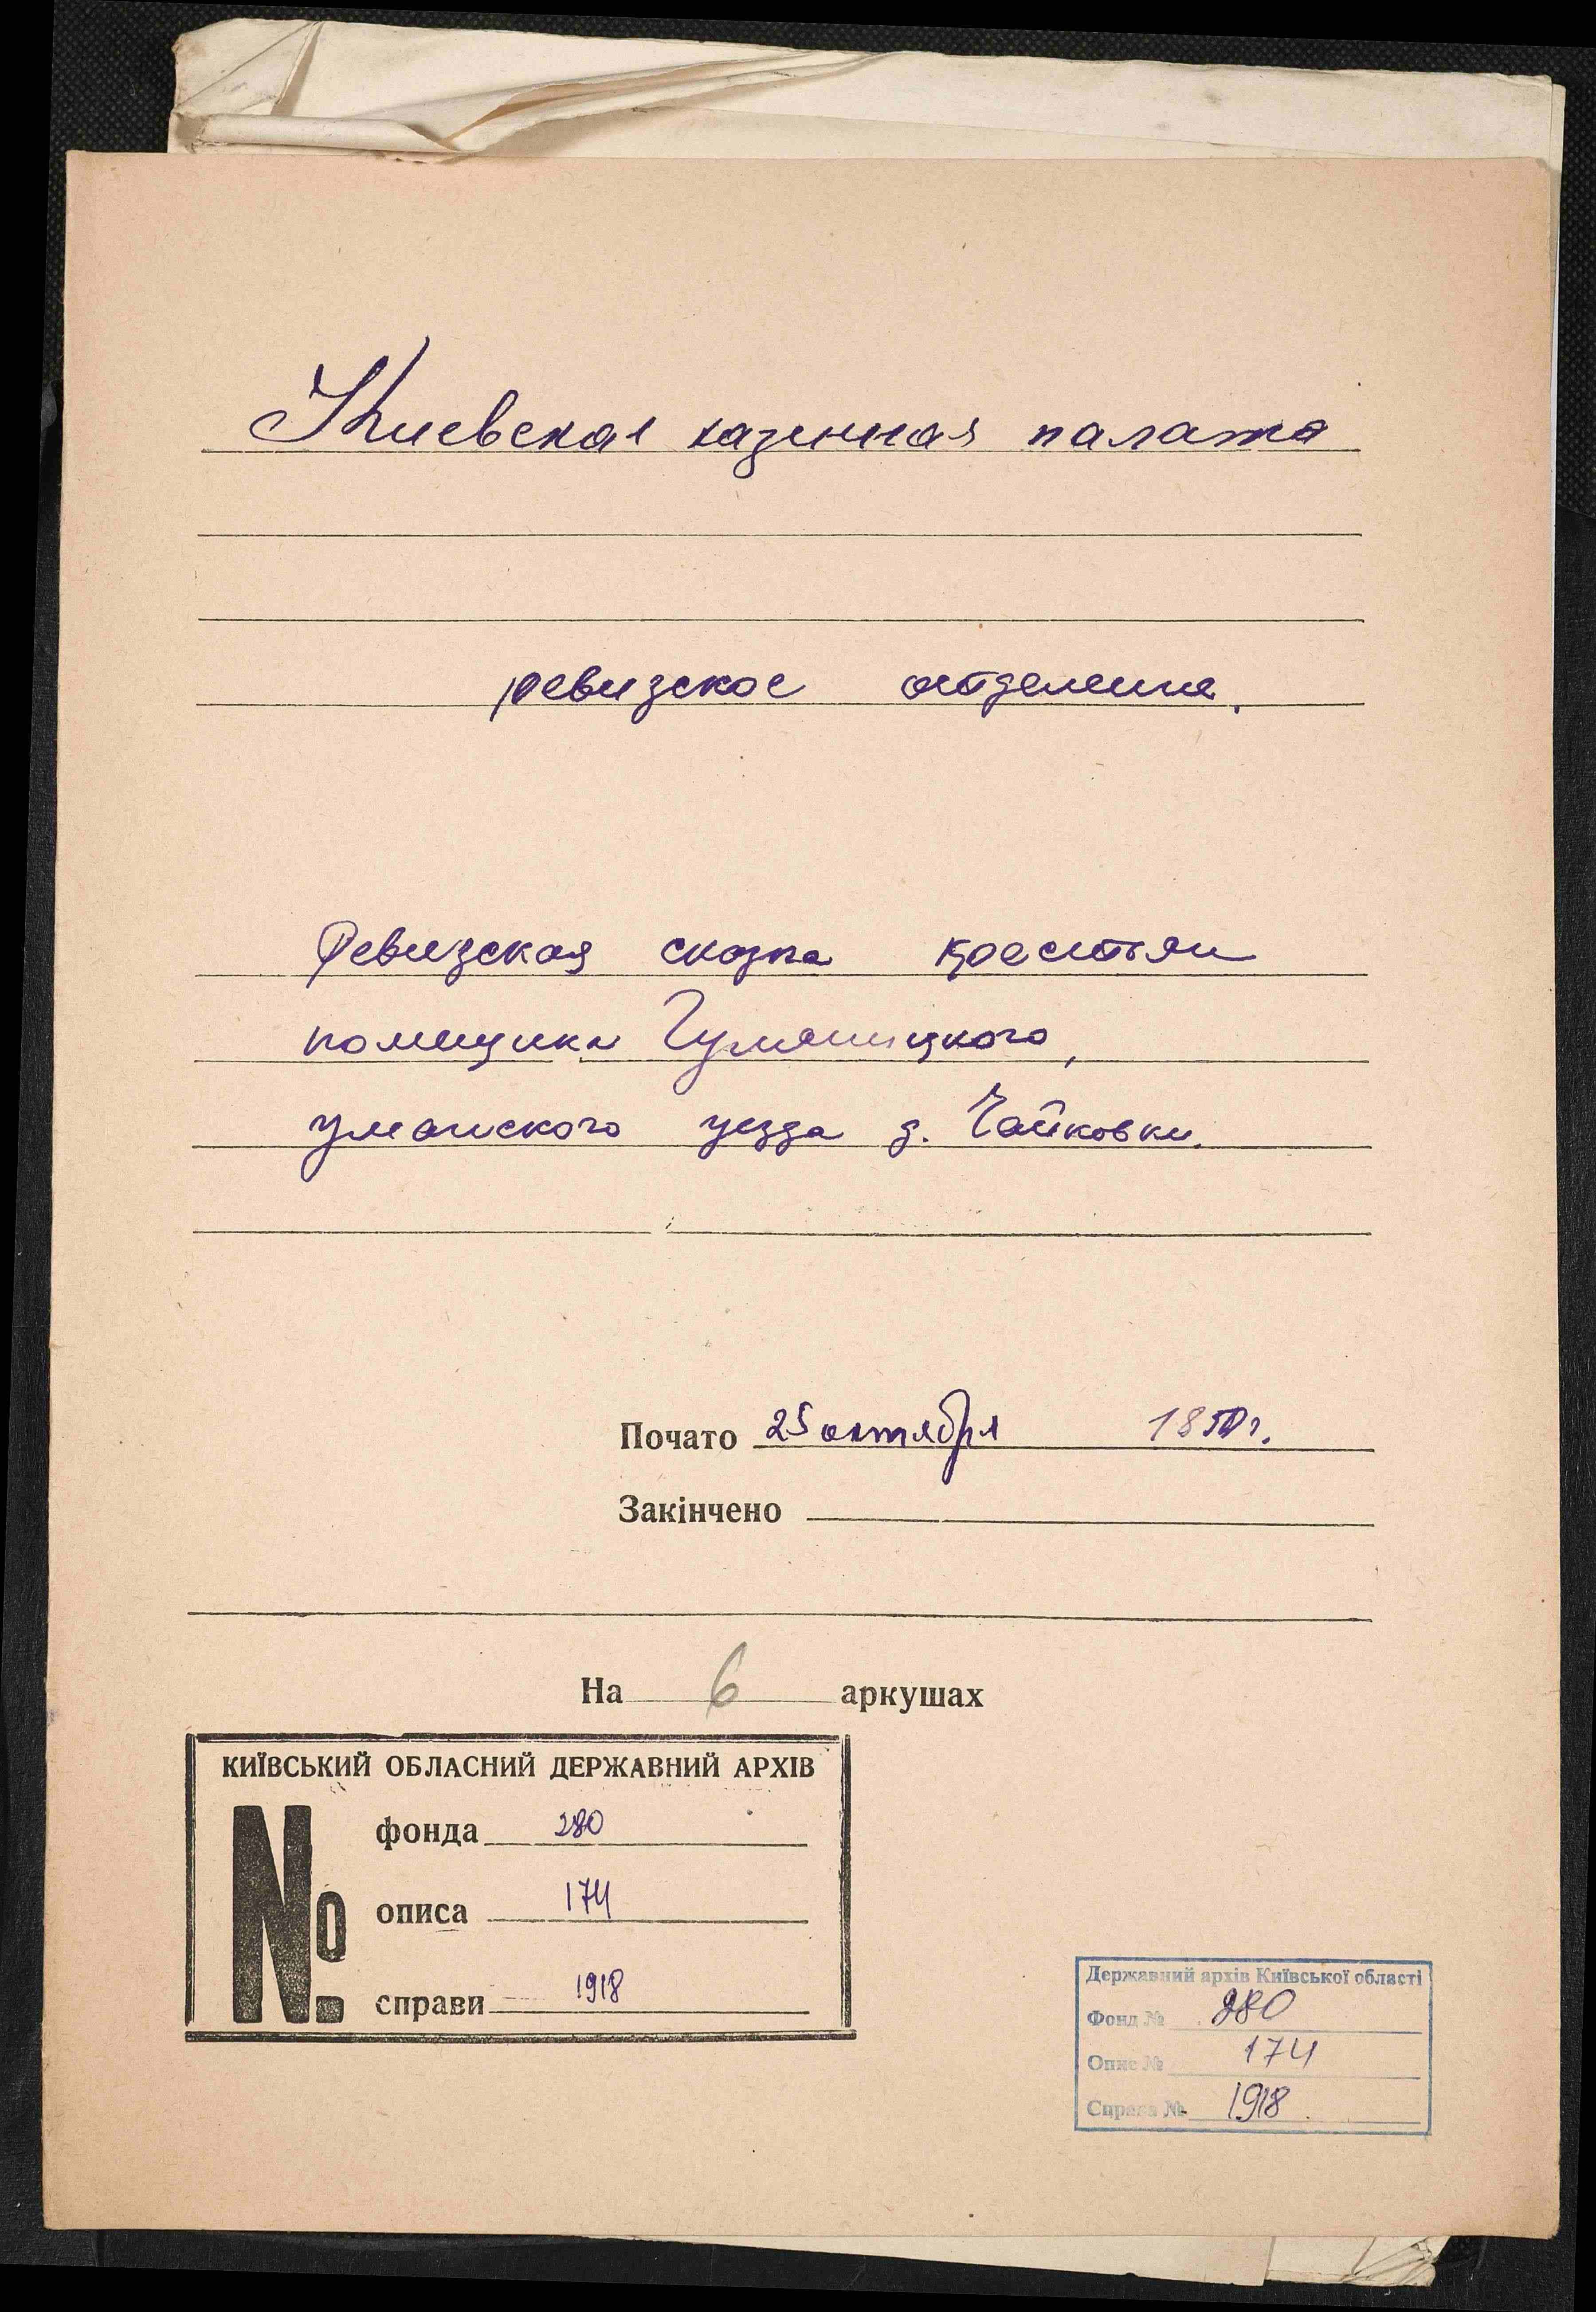 Киевская казенная палата
ревизское отделение.
Ревизская сказка крестьян
помещика Гуляницкого,
уманского уезда д. Чайковки.
Почато 25 октября 1850 г.
Закінчено
На 6 аркушах
КИЇВСЬКИЙ ОБЛАСНИЙ ДЕРЖАВНИЙ АРХІВ
№ фонда 280
описа 174
справи 1918
Державний архів Київської області
Фонд № 280
Опис № 174
Справа № 1918